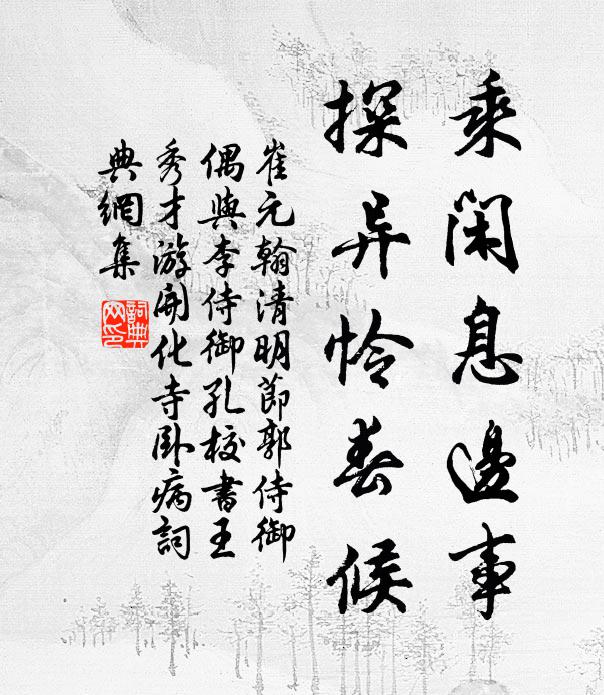 乘闲息边事
探异怜春候
崔元翰清明节郭侍御
偶與李侍御孔校書王
秀才游開化寺卧病詞
典網集
詞典
网印